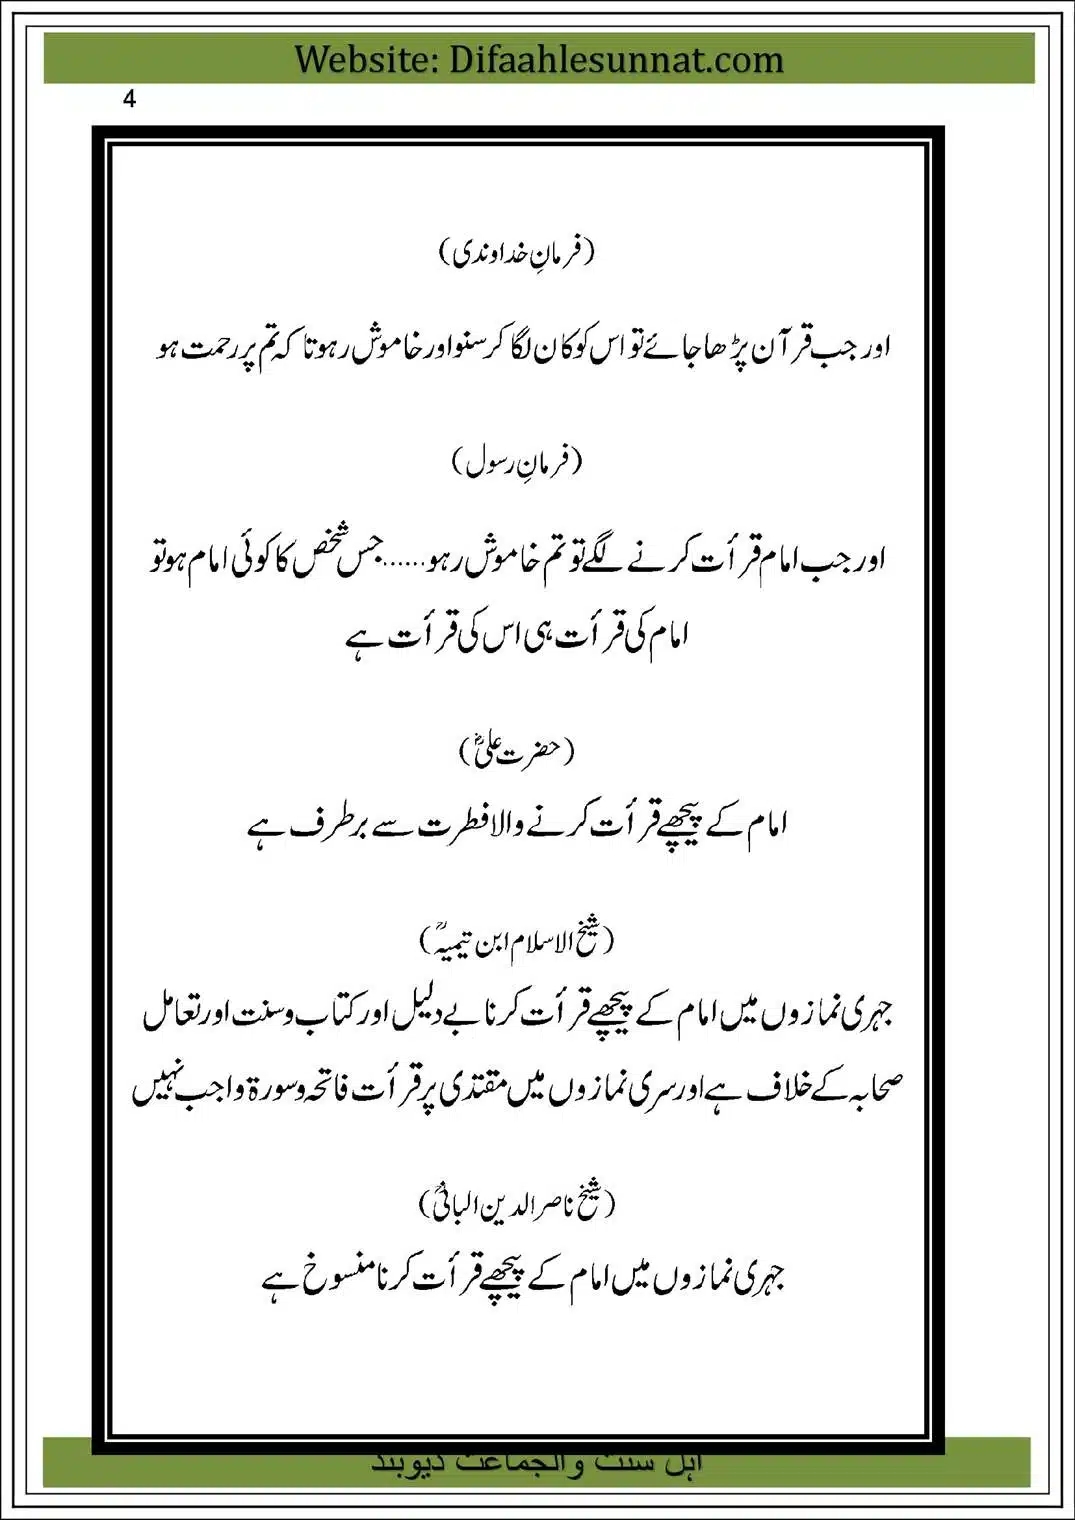 Website: Difaahlesunnat.com
4
(فرمانِ خداوندی)
اور جب قرآن پڑھا جائے تو اس کو کان لگا کر سنو اور خاموش رہو تا کہ تم پر رحمت ہو
(فرمانِ رسول)
اور جب امام قرأت کرنے لگے تو تم خاموش رہو......جس شخص کا کوئی امام ہو تو
امام کی قرأت ہی اس کی قرأت ہے
(حضرت علیؓ)
امام کے پیچھے قرأت کرنے والا فطرت سے برطرف ہے
(شیخ الاسلام ابن تیمیہؒ)
جہری نمازوں میں امام کے پیچھے قرأت کرنا بے دلیل اور کتاب و سنت اور تعامل
صحابہ کے خلاف ہے اور سری نمازوں میں مقتدی پر قرأت فاتحہ و سورۃ واجب نہیں
(شیخ ناصر الدین البانیؒ)
جہری نمازوں میں امام کے پیچھے قرأت کرنا منسوخ ہے
اہل سنت والجماعت دیوبند